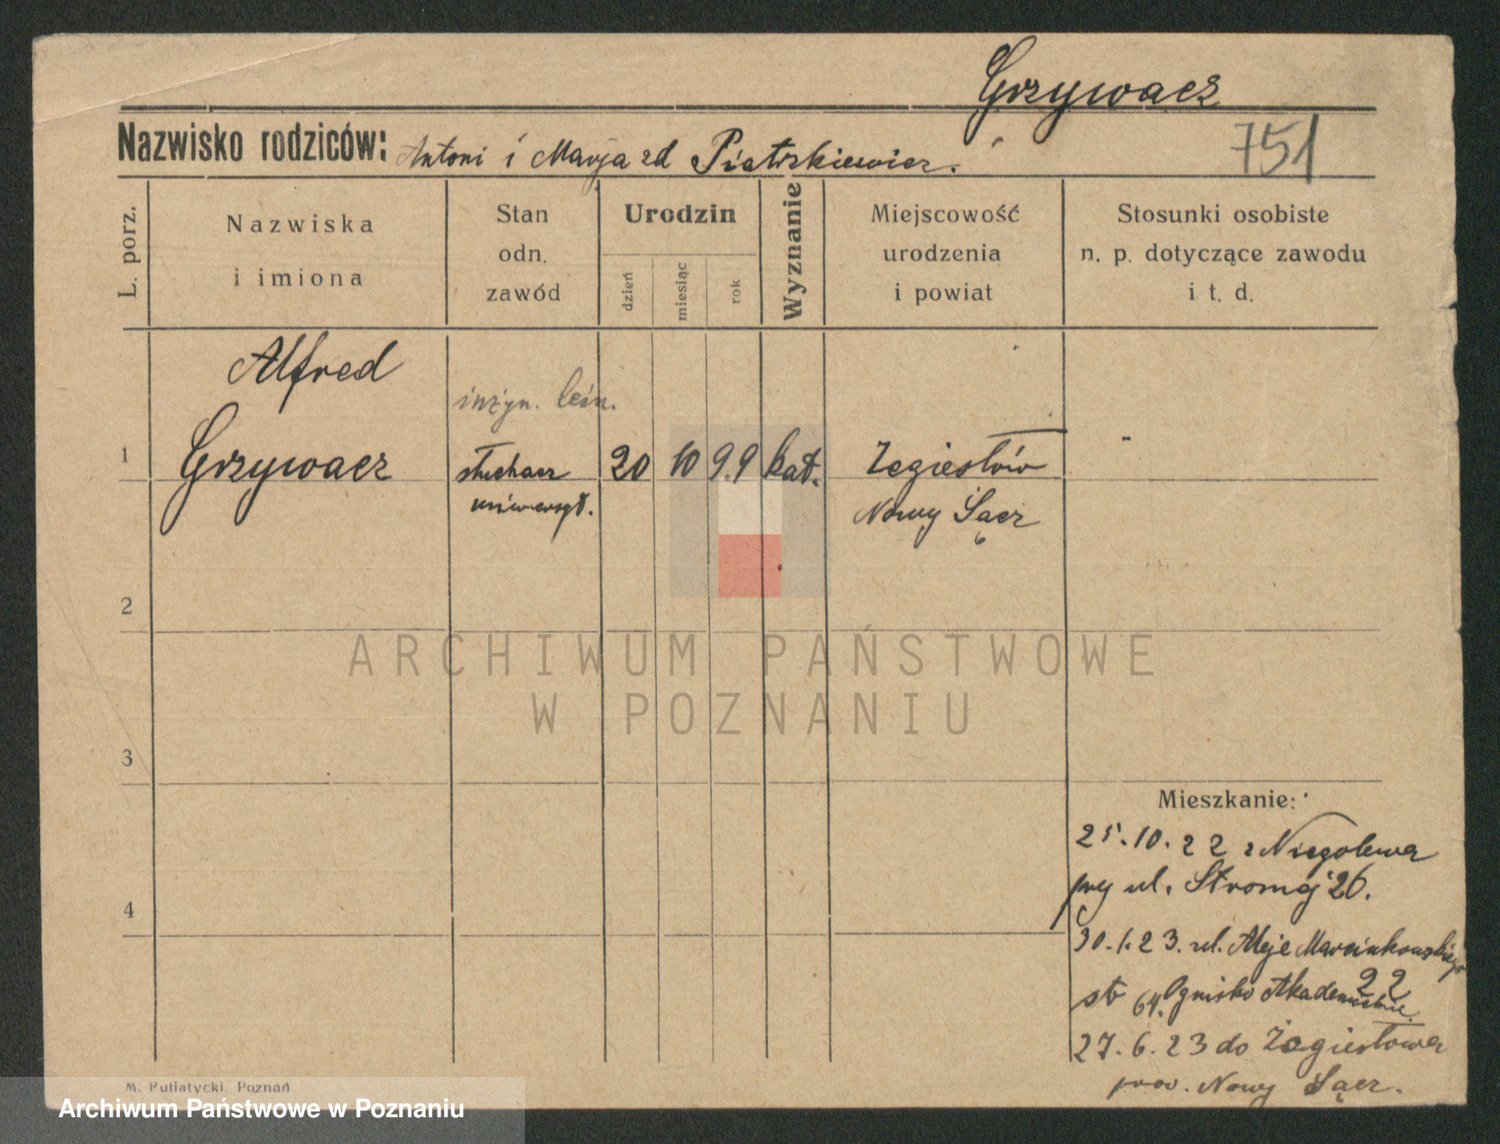 Grzywacz
Nazwisko rodziców: Antoni i Marja zd Piatrkiewicz.
751
L. porz.
Nazwiska
i imiona
Stan
odn.
zawód
Urodzin
dzień
miesiąc
rok
Wyznanie
Miejscowość
urodzenia
i powiat
Stosunki osobiste
n. p. dotyczące zawodu
i t. d.
Alfred
inżyn. leśn.
1 Grzywacz słuchacz 20 10 99 kat. Żegiestów
uniwersyt. Nowy Sącz
2
ARCHIWUM PAŃSTWOWE
W POZNANIU
3
Mieszkanie:
25.10.22 z Niegolewa
przy ul. Stromej 26.
4
30.1.23. ul. Aleje Marcinkowskiego
22
Ognisko Akademickie.
27.6.23 do Żegiestowa
pow. Nowy Sącz.
M. Putiatycki, Poznań
Archiwum Państwowe w Poznaniu